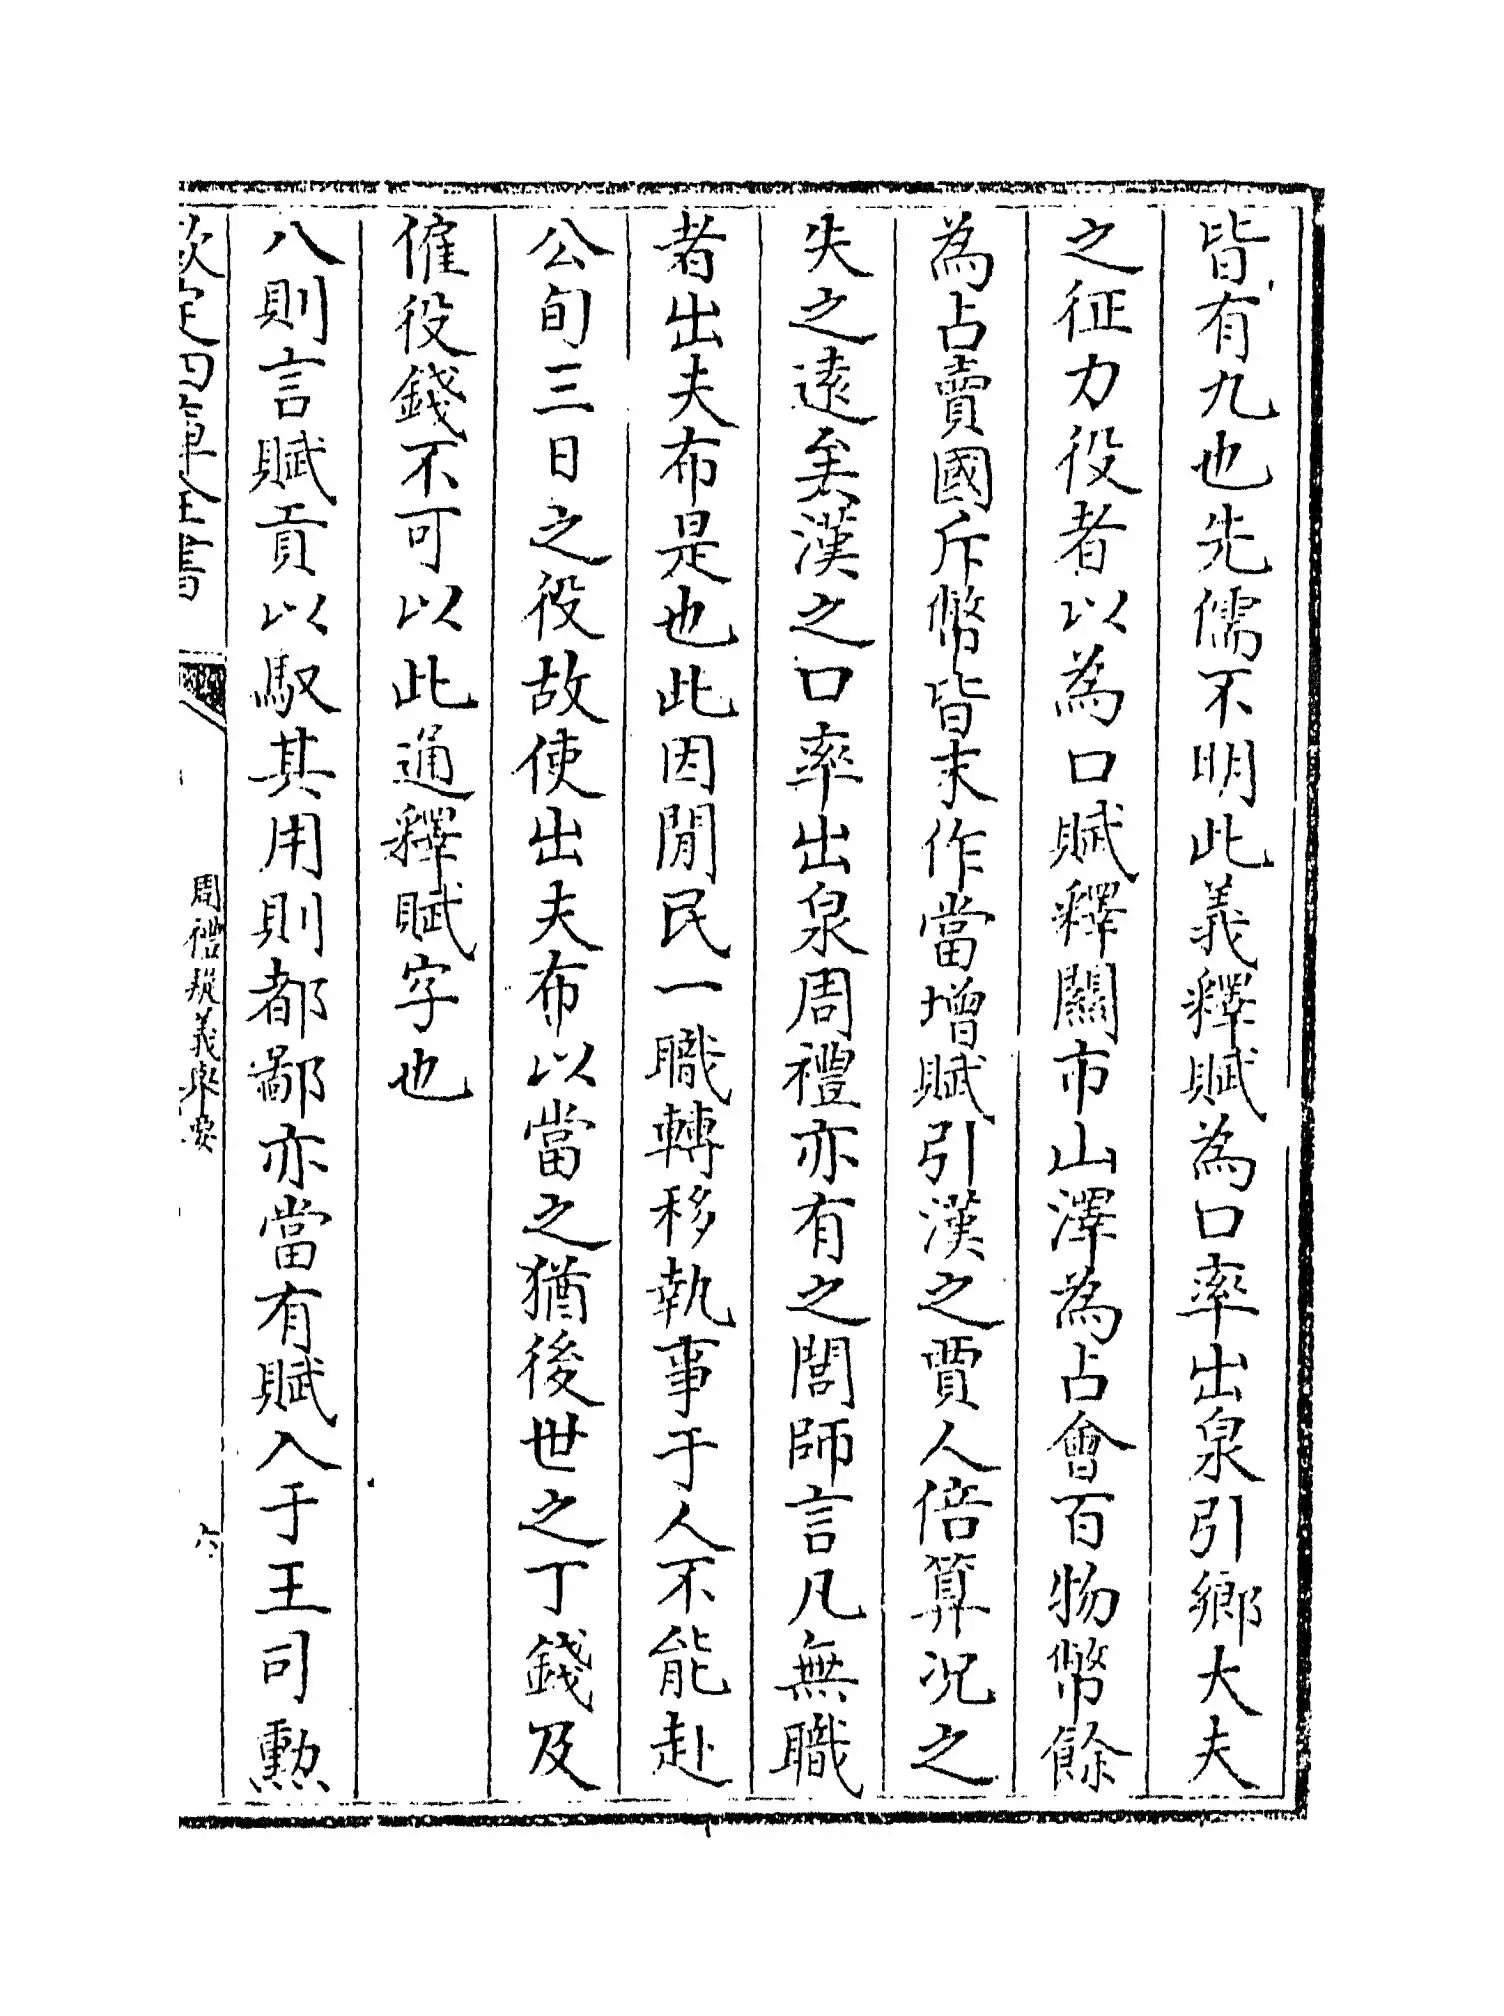 皆有九也先儒不明此義釋賦為口率出泉引鄉大夫
之征力役者以為口賦釋關市山澤為占會百物幣餘
為占賣國斥幣皆末作當增賦引漢之賈人倍算况之
失之逺矣漢之口率出泉周禮亦有之閭師言凡無職
者出夫布是也此因閒民一職轉移執事于人不能赴
公旬三日之役故使出夫布以當之猶後世之丁錢及
僱役錢不可以此通釋賦字也
八則言賦貢以馭其用則都鄙亦當有賦入于王司勲
欽定四庫全書
周禮疑義舉要
六